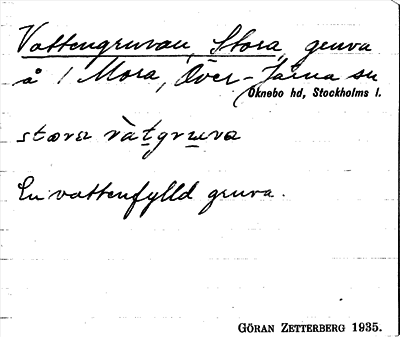 Vattengruvan, Stora, gruva
å 1 Mora, Över-Järna sn
Öknebo hd, Stockholms l.
stora vàtgruva
En vattenfylld gruva.
GÖRAN ZETTERBERG 1935.